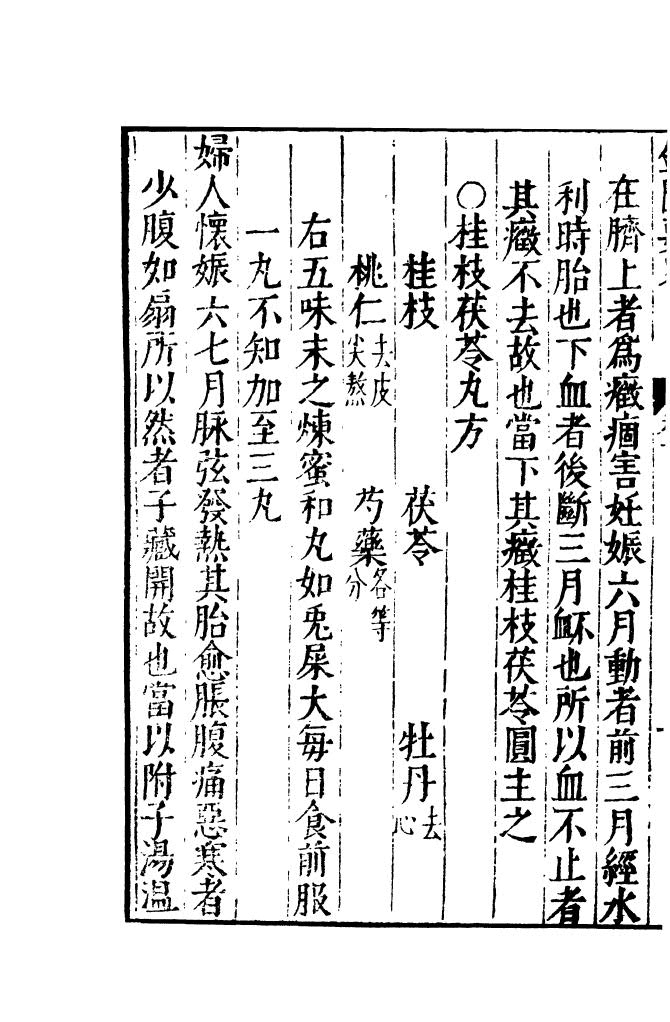 在臍上者為癥痼害妊娠六月動者前三月經水
利時胎也下血者後斷三月衃也所以血不止者
其癥不去故也當下其癥桂枝茯苓圓主之
○桂枝茯苓丸方
桂枝　茯苓　牡丹去心
桃仁去皮尖熬　芍藥各等分
右五味末之煉蜜和丸如兎屎大每日食前服
一丸不知加至三丸
婦人懷娠六七月脉弦發熱其胎愈脹腹痛惡寒者
少腹如扇所以然者子藏開故也當以附子湯温